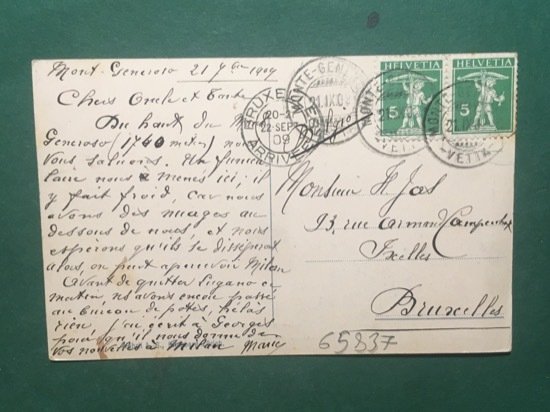 Mont Generoso 21 7bre 1909
Chers Oncle et Tante
Du haut du Mont
Generoso (1740 mètres) nous
vous saluons. Un funicu
laire nous a menés ici; il
y fait froid, car nous
avons des nuages au
dessous de nous, et nous
espérons qu'ils se dissipent
alors, on peut apercevoir Milan
Avant de quitter Lugano ce
matin, ns avons encore passé
au bureau de postes, hélas
rien, j'ai écrit à Georges
pour qu'il nous donne de
vos nouvelles à Milan Marie
BRUXELLES
20-2
22 SEPT
09
ARRIVÉE
MONTE-GENEROSO
21.IX.09
HELVETIA
5
HELVETIA
5
Monsieur H. Jas
93, rue Armand Campenhout
Ixelles
Bruxelles
65837